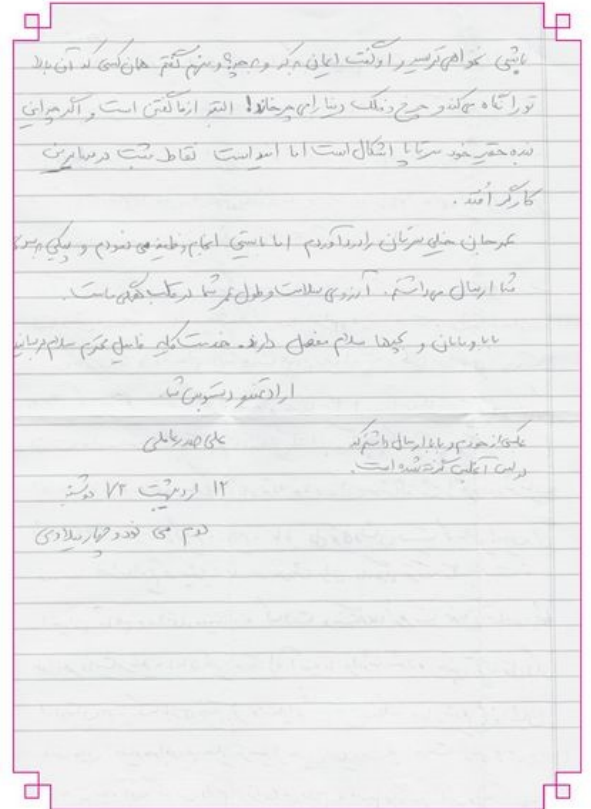 باشی نخواهی ترسید و او گفت ایمان به که و به چه؟ و منهم گفتم همان کسی که آن بلا
تو را نگاه می‌کند و چرخ و فلک دنیا را می‌چرخاند! البته از ما گفتن است و اگر چه این
بنده حقیر خود سر تا پا اشکال است اما امید است نقاط مثبت در سایرین
کارگر اُفتد.
عمه‌جان خیلی سرتان را درد آوردم اما بایستی انجام وظیفه می‌نمودم و پیکی به سوی
شما ارسال می‌داشتم. آرزوی سلامت و طول عمر شما در قلب همگی ماست.
بابا و مامان و بچه‌ها سلام مفصل دارند. خدمت کلیه فامیل محترم سلام برسانید
ارادتمند و دستبوس شما
علی صدر عاملی
عکسی از خودم و بابا ارسال داشتم که
در این آتلیه گرفته شده است.
۱۲ اردیبهشت ۷۳ دوشنبه
دوم می نود و چهار میلادی